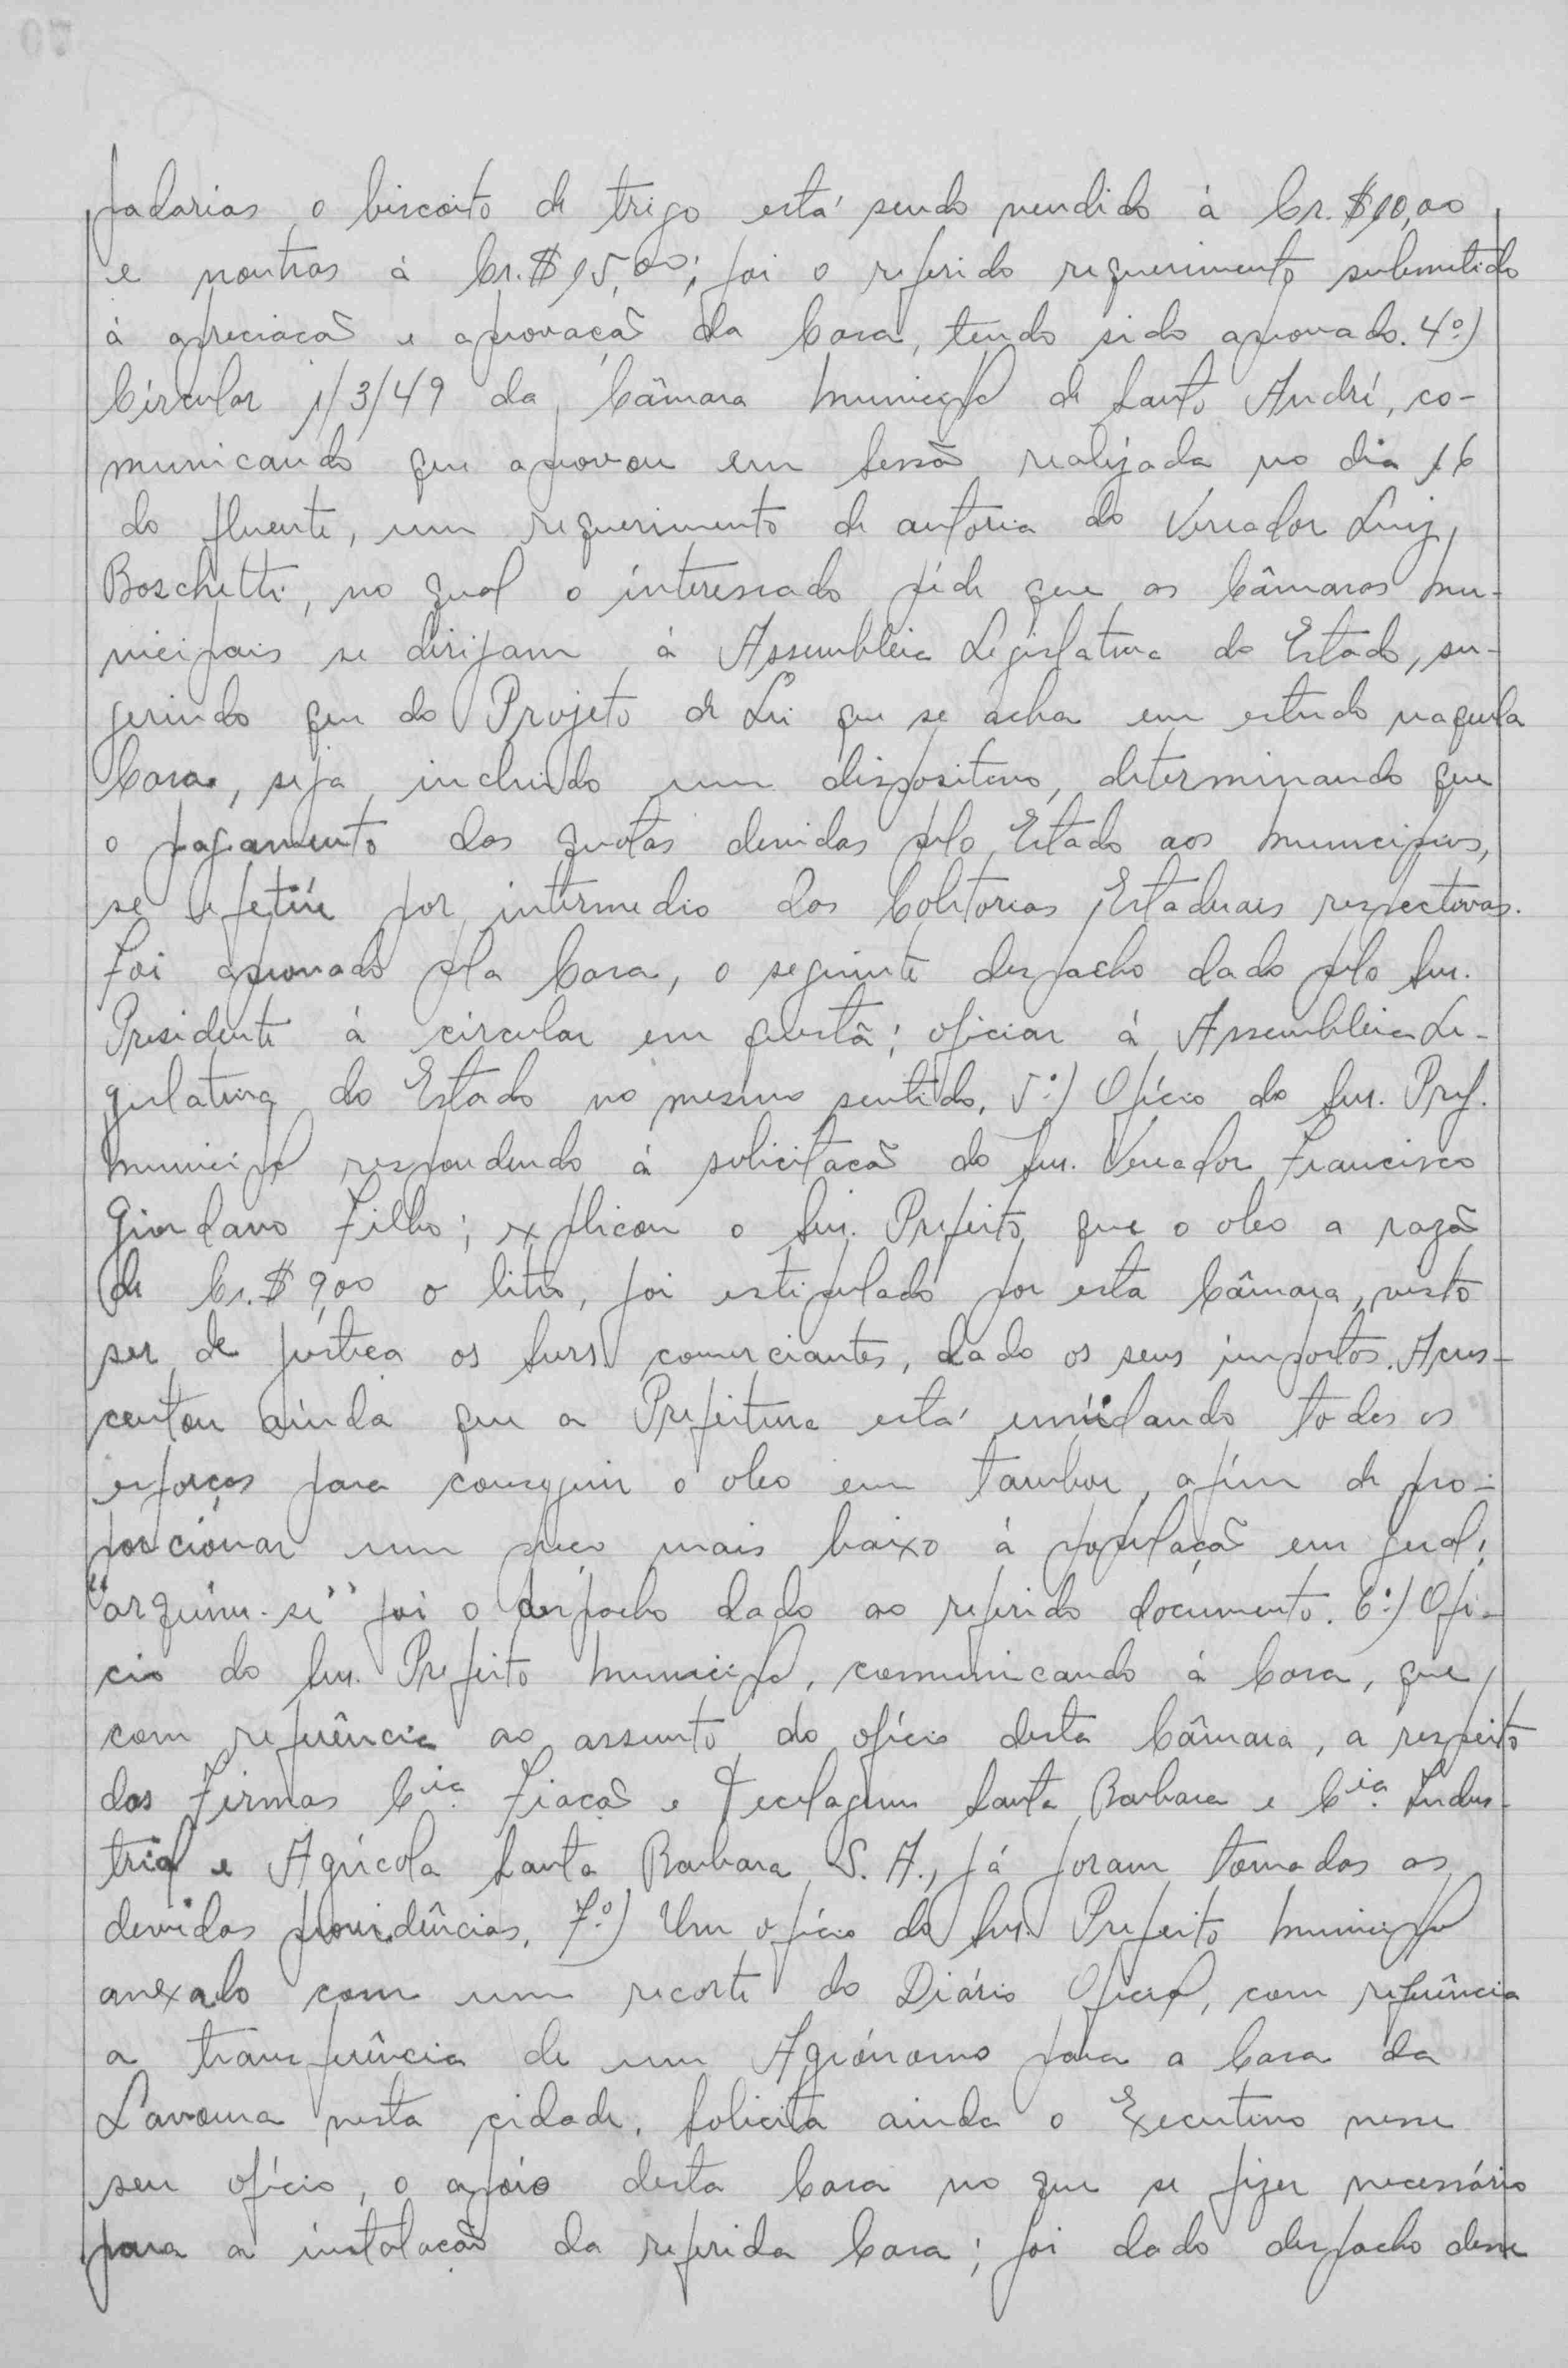 padarias o biscoito de trigo está sendo vendido à Cr.$10,00
e noutras à Cr.$15,00; foi o referido requerimento submetido
à apreciacão e aprovação da Casa, tendo sido aprovado. 4º)
Circular 1/3/49 da Câmara Municipal de Santo André, co-
municando que aprovou em Sessão realizada no dia 16
do fluente, um requerimento de autoria do Vereador Luiz
Boschetti, no qual o interessado péde que as Câmaras Mu-
nicipais se dirijam à Assembléia Legislativa do Estado, su-
gerindo que do Projeto de Lei que se acha em estudo naquela
Casa, seja incluido um dispositivo, determinando que
o pagamento das quotas devidas pelo Estado aos Municipios,
se efetúe por intermedio das Coletorias Estaduais respectivas.
Foi aprovado pela Casa, o seguinte despacho dado pelo Snr.
Presidente à circular em questã; oficiar à Assembléia Le-
gislativa do Estado no mesmo sentido. 5º) Ofício do Snr. Pref.
Municipal respondendo à solicitacão do Snr. Vereador Francisco
Giordano Filho; explicou o Snr. Prefeito que o oleo a razão
de Cr.$ 9,00 o litro, foi estipulado por esta Câmara, visto
ser de justiça os Snrs. comerciantes, dado os seus impostos. Acres-
centou ainda que a Prefeitura está envidando todos os
esforços para conseguir o oleo em tambor, afim de pro-
porcionar um preço mais baixo à população em geral;
"arquive-se" foi o despacho dado ao referido documento. 6º) Ofi-
cio do Snr. Prefeito Municipal, comunicando à Casa, que
com referência ao assunto do ofício desta Câmara, a respeito
das Firmas Cia. Fiação e Tecelagem Santa Barbara e Cia. Indus-
trial e Agrícola Santa Barbara S. A., já foram tomadas as
devidas providências. 7º) Um ofício do Snr. Prefeito Municipal
anexado com um recorte do Diário Oficial, com referência
a transferência de um Agrónomo para a Casa da
Lavoura nesta cidade. Solicita ainda o Executivo nesse
seu ofício, o apóio desta Casa no que se fizer necessário
para a instalação da referida Casa; foi dado despacho desse